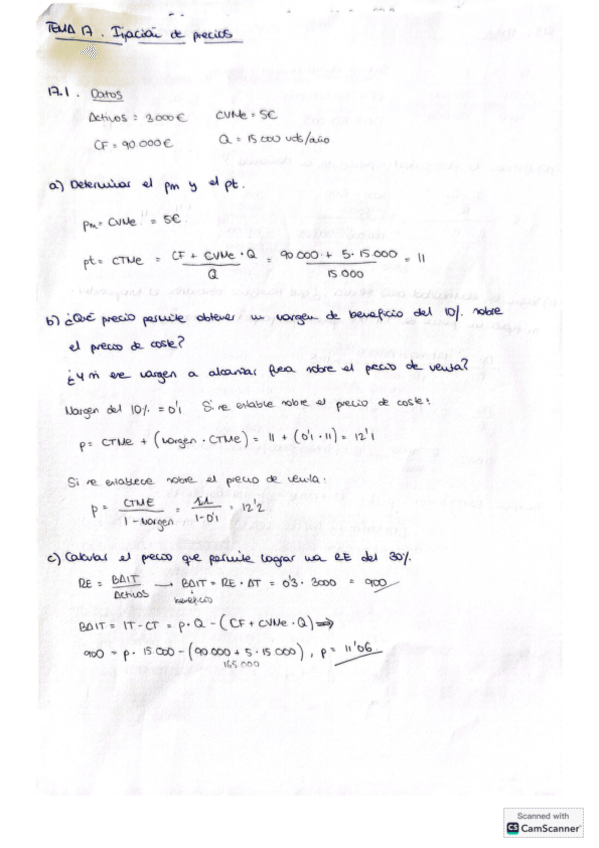 TEMA 17. Fijación de precios
17.1. Datos
Activos = 3000€ CVMe = 5€
CF = 90.000€ Q = 15 000 uds/año
a) Determinar el pm y el pt.
pm = CVMe = 5€
pt = CTMe = CF + CVMe · Q / Q = 90 000 + 5 · 15 000 / 15 000 = 11
b) ¿Qué precio permite obtener un margen de beneficio del 10% sobre
el precio de coste?
¿Y si ese margen a alcanzar fuera sobre el precio de venta?
Margen del 10% = 0'1 Si se estable sobre el precio de coste:
p = CTMe + (margen · CTMe) = 11 + (0'1 · 11) = 12'1
Si se establece sobre el precio de venta:
p = CTME / 1 - margen = 11 / 1 - 0'1 = 12'2
c) Calcular el precio que permite lograr una RE del 30%.
RE = BAIT / Activos → BAIT = RE · AT = 0'3 · 3000 = 900
beneficio
BAIT = IT - CT = p · Q - (CF + CVMe · Q) ⇒
900 = p · 15 000 - (90 000 + 5 · 15 000), p = 11'06
165 000
Scanned with
CS CamScanner